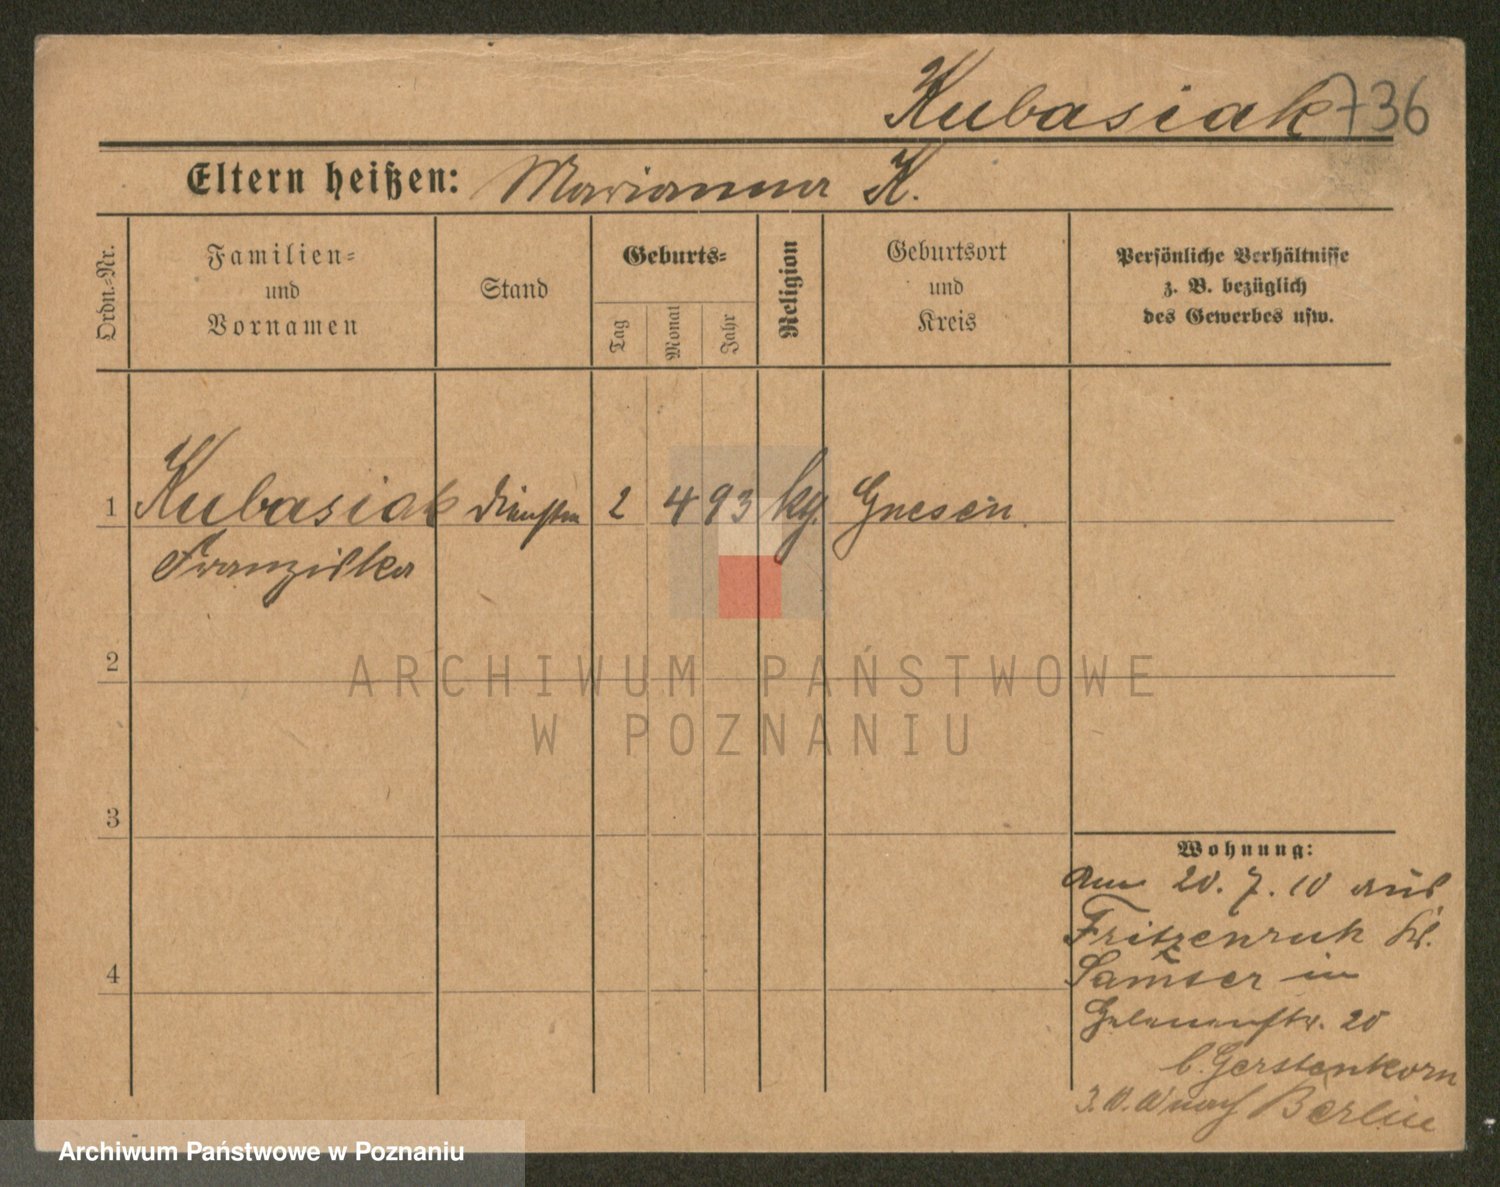 Kubasiak 736
Eltern heißen: Marianna K.
Ordn.-Nr.
Familien-
und
Vornamen
Stand
Geburts-
Tag
Monat
Jahr
Religion
Geburtsort
und
Kreis
Persönliche Verhältnisse
z. B. bezüglich
des Gewerbes usw.
1 Kubasiak 2 4 93 kg. Gnesen
Franziska
2
ARCHIWUM PAŃSTWOWE
W POZNANIU
3
Wohnung:
Am 20. 7. 10 aus
Fritzenruh Kr.
4
Samter in
20
b. Gerstenkorn
nach Berlin
Archiwum Państwowe w Poznaniu